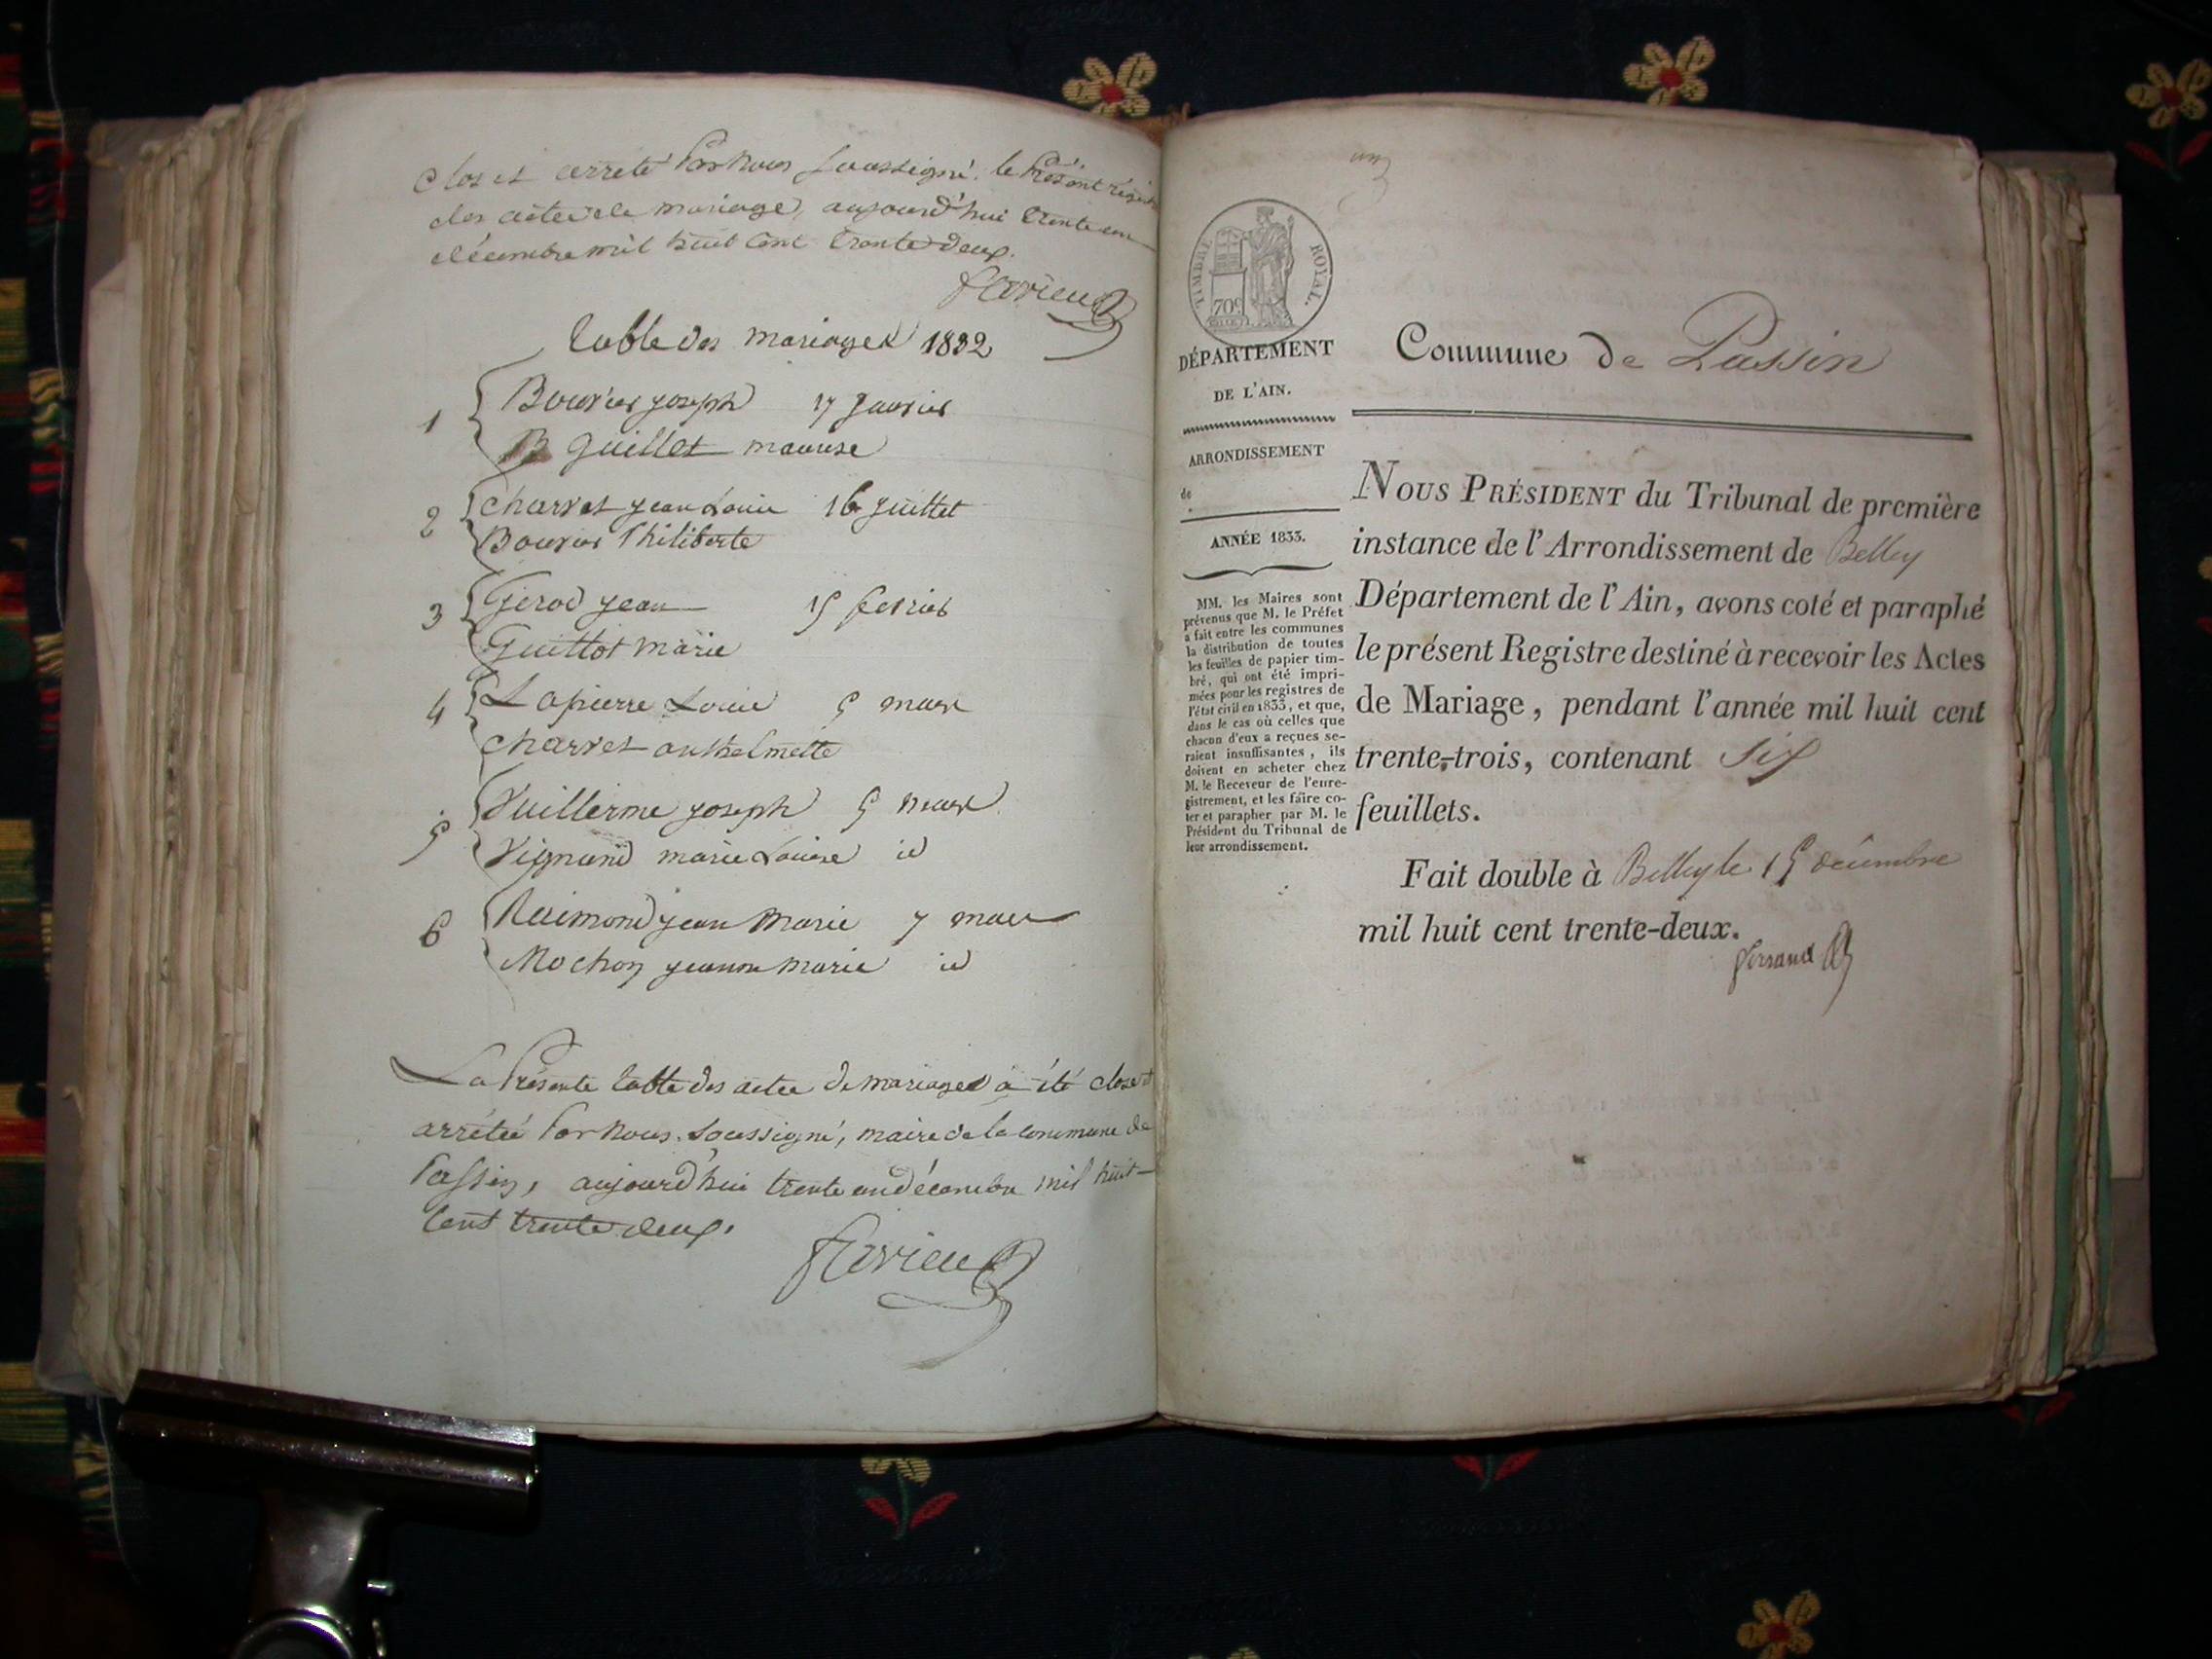 Clos et arrêté Par Nous Soussigné. le Présent régistre
des actes de mariage, aujourd'hui trente un
décembre mil huit Cent trente deux.
table des mariages 1832
1 Bouvier joseph 17 Janvier
B Guillet maurise
2 Charvet jean Louis 16 juillet
Bouvier Philiberte
3 Gerod jean 15 fevrier
Guillot marie
4 Lapierre Louis 5 mars
Charvet anthelmette
5 Vuillerme joseph 5 mars
Vignand marie Louise id
6 Raimond jean Marie 7 mars
Mochon jeanne Marie id
La Présente table des actes de mariages a été close et
arrêtée Par Nous. Soussigné, maire de la Commune de
Passin, aujourd'hui trente un décembre mil huit
Cent trente deux.
un
TIMBRE ROYAL.
70c
DÉPARTEMENT
DE L'AIN.
ARRONDISSEMENT
de
ANNÉE 1833.
MM. les Maires sont
prévenus que M. le Préfet
a fait entre les communes
la distribution de toutes
les feuilles de papier tim-
bré, qui ont été impri-
mées pour les registres de
l'état civil en 1833, et que,
dans le cas où celles que
chacun d'eux a reçues se-
raient insuffisantes, ils
doivent en acheter chez
M. le Receveur de l'enre-
gistrement, et les faire co-
ter et parapher par M. le
Président du Tribunal de
leur arrondissement.
Commune de Passin
NOUS PRÉSIDENT du Tribunal de première
instance de l'Arrondissement de Belley
Département de l'Ain, avons coté et paraphé
le présent Registre destiné à recevoir les Actes
de Mariage, pendant l'année mil huit cent
trente-trois, contenant Six
feuillets.
Fait double à Belley le 15 décembre
mil huit cent trente-deux.